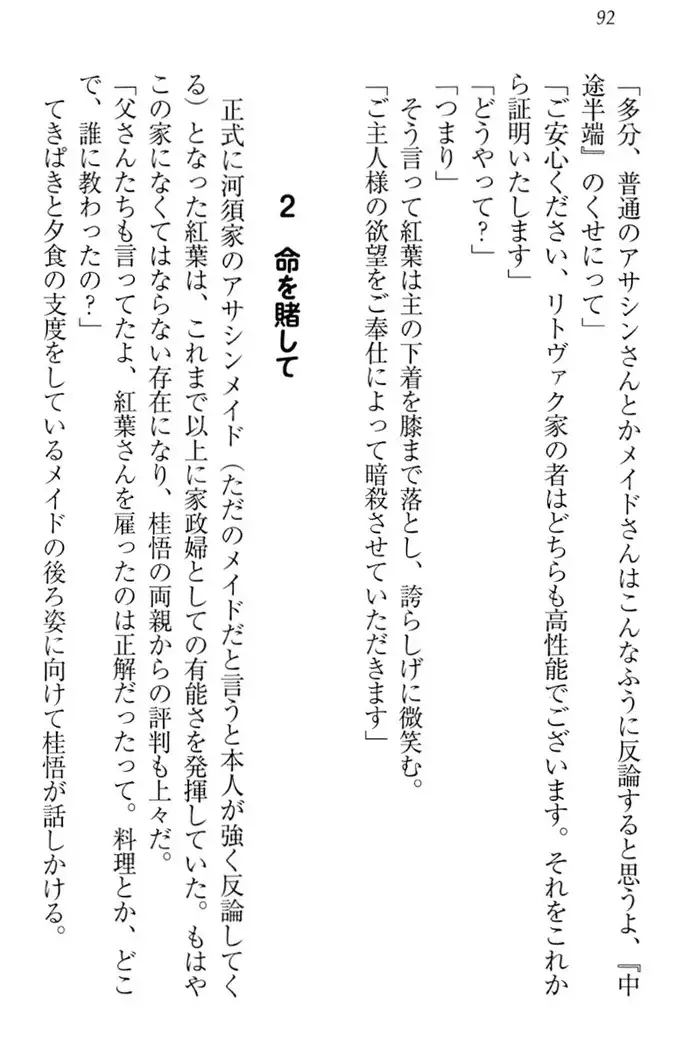 92
「多分、普通のアサシンさんとかメイドさんはこんなふうに反論すると思うよ、『中
途半端』のくせにって」
「ご安心ください、リトヴァク家の者はどちらも高性能でございます。それをこれか
ら証明いたします」
「どうやって？」
「つまり」
そう言って紅葉は主の下着を膝まで落とし、誇らしげに微笑む。
「ご主人様の欲望をご奉仕によって暗殺させていただきます」
2 命を賭して
正式に河須家のアサシンメイド（ただのメイドだと言うと本人が強く反論してく
る）となった紅葉は、これまで以上に家政婦としての有能さを発揮していた。もはや
この家になくてはならない存在になり、桂悟の両親からの評判も上々だ。
「父さんたちも言ってたよ、紅葉さんを雇ったのは正解だったって。料理とか、どこ
で、誰に教わったの？」
てきぱきと夕食の支度をしているメイドの後ろ姿に向けて桂悟が話しかける。